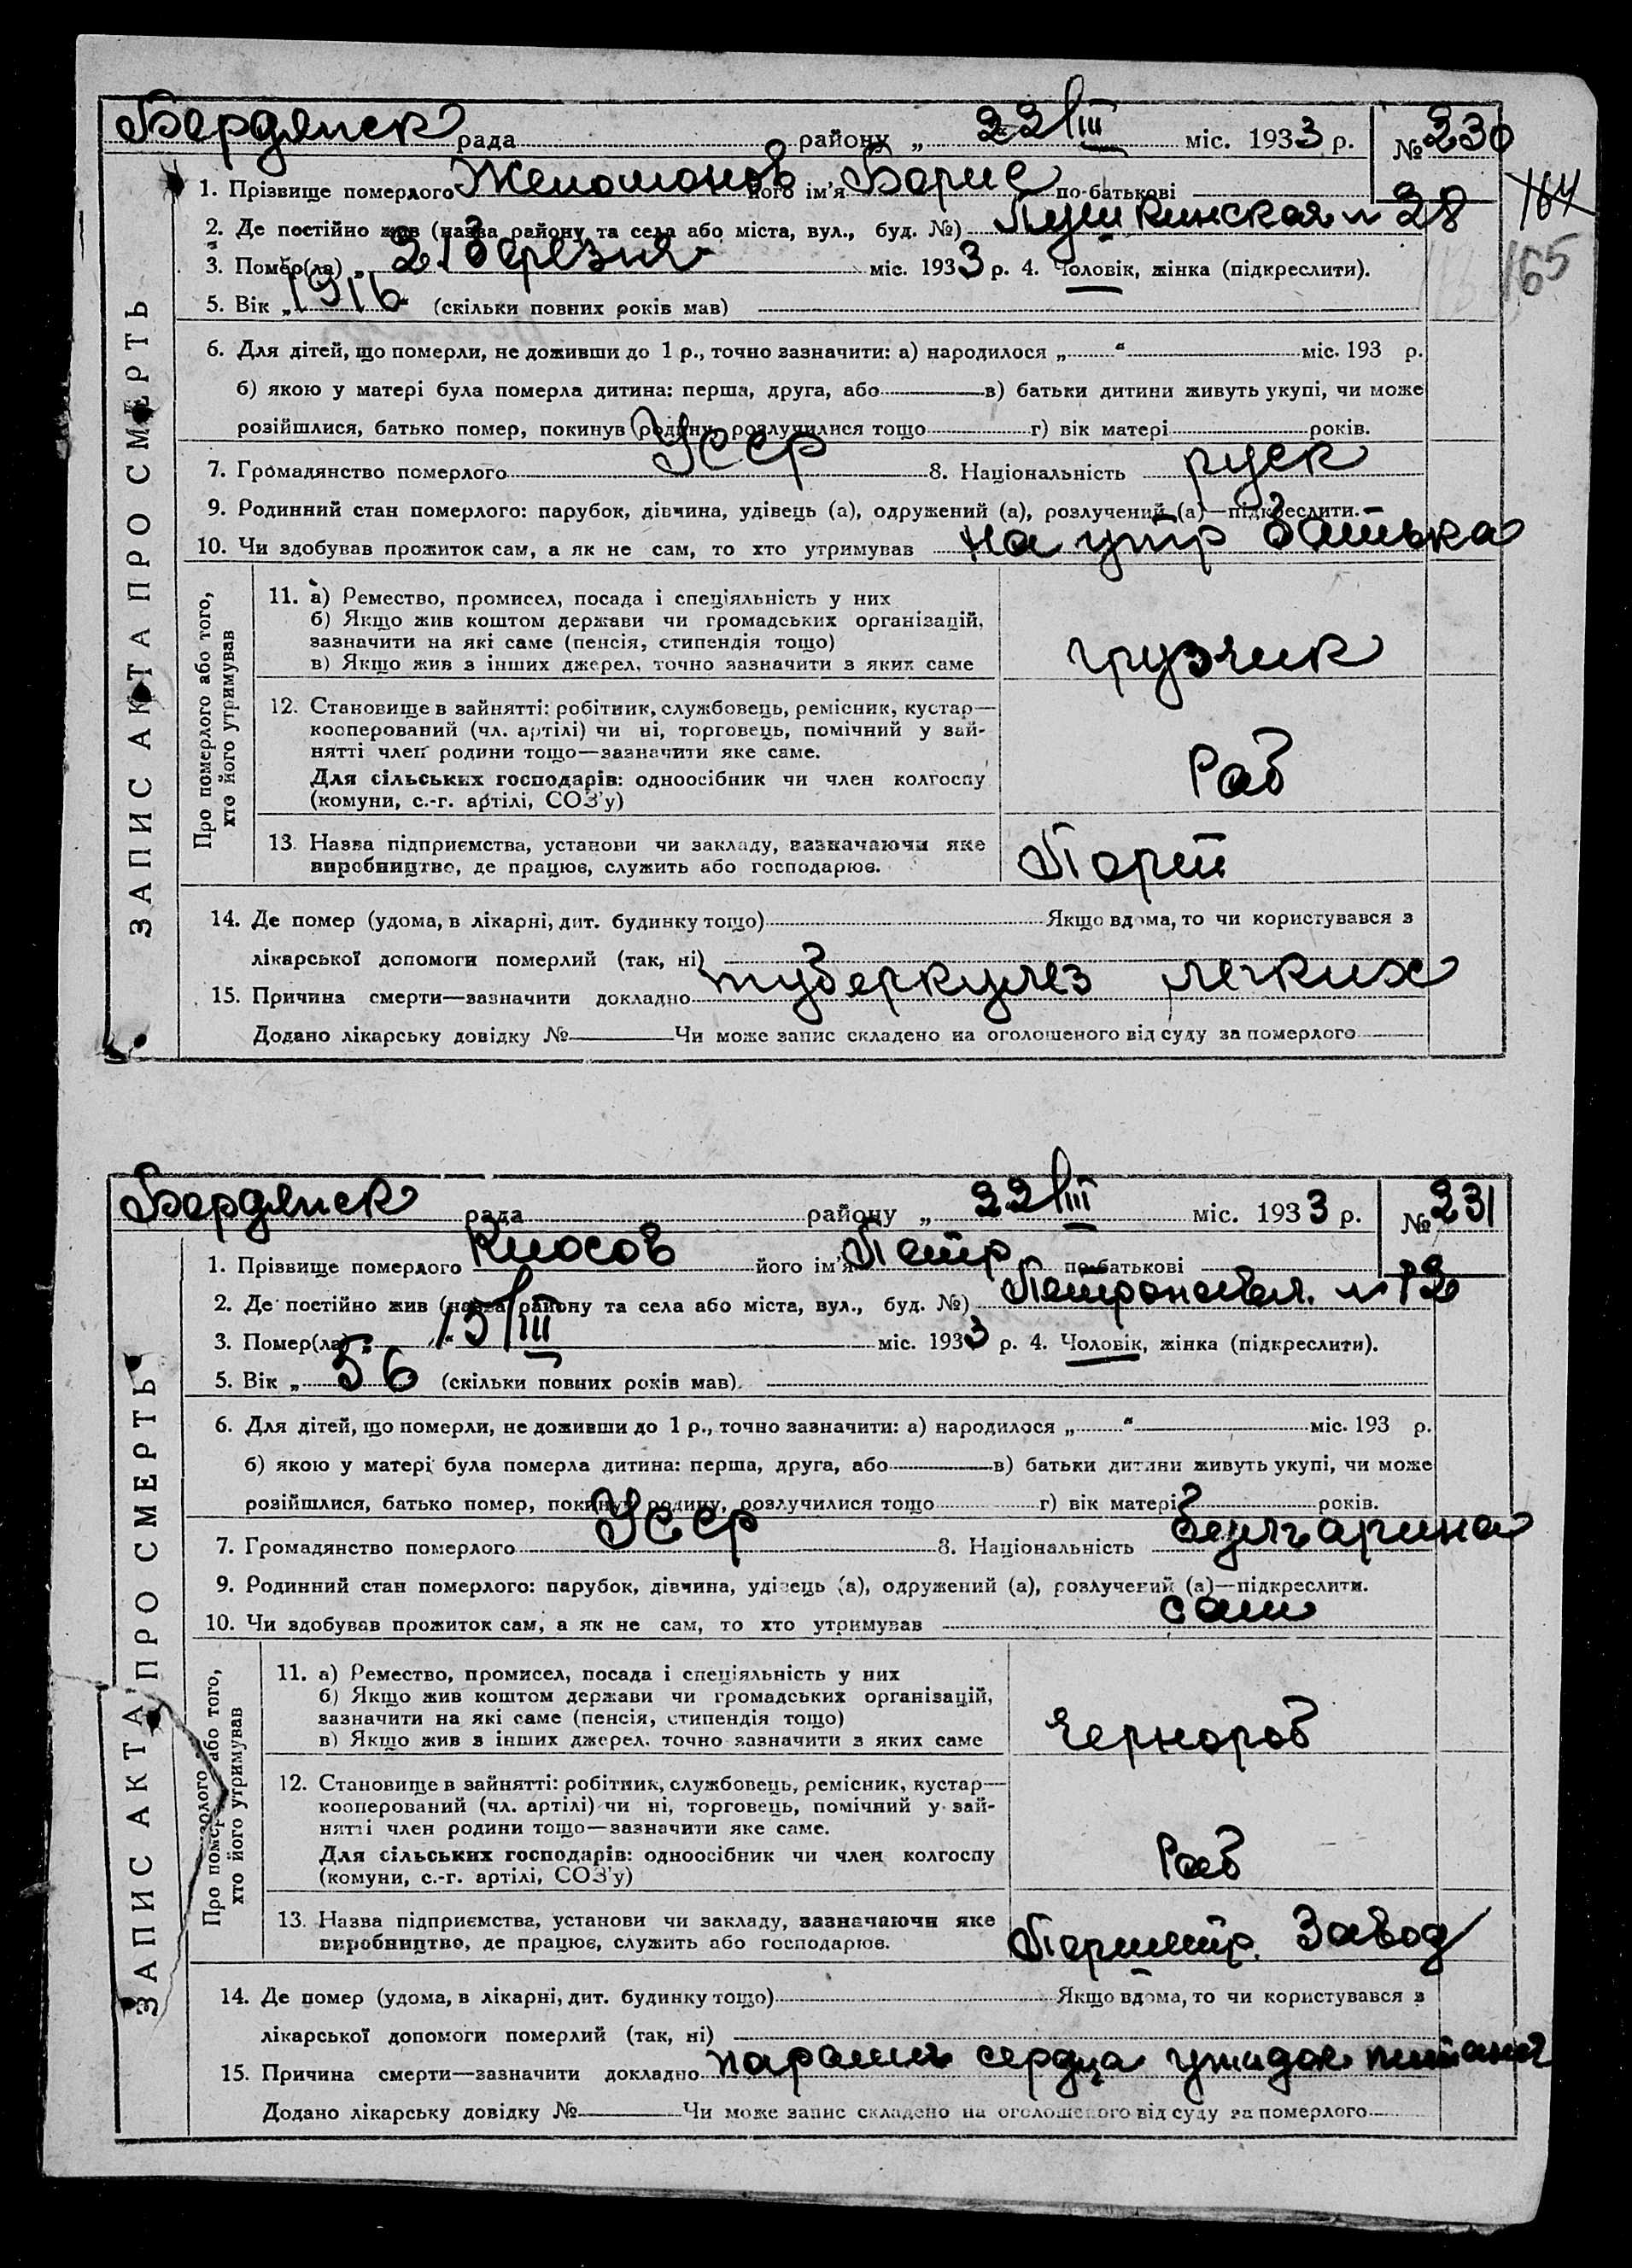 Бердянск рада району „ 22/III міс. 1933 р. № 230
1. Прізвище померлого його ім'я Борис по-батькові
164
2. Де постійно жив (назва району та села або міста, вул., буд. №) Пушкинская № 28
165
3. Помер(ла) „ 21 березня міс. 1933 р. 4. Чоловік, жінка (підкреслити).
5. Вік „ 1916 (скільки повних років мав)
6. Для дітей, що померли, не доживши до 1 р., точно зазначити: а) народилося „ “ міс. 193 р.
б) якою у матері була померла дитина: перша, друга, або в) батьки дитини живуть укупі, чи може
розійшлися, батько помер, покинув родину, розлучилися тощо г) вік матері років.
7. Громадянство померлого УССР 8. Національність руск
9. Родинний стан померлого: парубок, дівчина, удівець (а), одружений (а), розлучений (а)—підкреслити.
10. Чи здобував прожиток сам, а як не сам, то хто утримував на утр батька
ЗАПИС АКТА ПРО СМЕРТЬ
Про померлого або того,
хто його утримував
11. а) Ремество, промисел, посада і спеціяльність у них
б) Якщо жив коштом держави чи громадських організацій,
зазначити на які саме (пенсія, стипендія тощо)
в) Якщо жив з інших джерел, точно зазначити з яких саме
грузчик
12. Становище в зайнятті: робітник, службовець, ремісник, кустар—
кооперований (чл. артілі) чи ні, торговець, помічний у зай-
нятті член родини тощо—зазначити яке саме.
Для сільських господарів: одноосібник чи член колгоспу
(комуни, с.-г. артілі, СОЗ'у)
Раб
13. Назва підприємства, установи чи закладу, зазначаючи яке
виробництво, де працює, служить або господарює.
Порт
14. Де помер (удома, в лікарні, дит. будинку тощо) Якщо вдома, то чи користувався з
лікарської допомоги померлий (так, ні)
15. Причина смерти—зазначити докладно туберкулез легких
Додано лікарську довідку № Чи може запис складено на оголошеного від суду за померлого
Бердянск рада району „ 22/III міс. 1933 р. № 231
1. Прізвище померлого Кюсов його ім'я Петр по-батькові
2. Де постійно жив (назва району та села або міста, вул., буд. №) № 72
3. Помер(ла) „ 15/III міс. 1933 р. 4. Чоловік, жінка (підкреслити).
5. Вік „ 56 (скільки повних років мав).
6. Для дітей, що померли, не доживши до 1 р., точно зазначити: а) народилося „ “ міс. 193 р.
б) якою у матері була померла дитина: перша, друга, або в) батьки дитини живуть укупі, чи може
розійшлися, батько помер, покинув родину, розлучилися тощо г) вік матері років.
7. Громадянство померлого УССР 8. Національність
9. Родинний стан померлого: парубок, дівчина, удівець (а), одружений (а), розлучений (а)—підкреслити.
10. Чи здобував прожиток сам, а як не сам, то хто утримував сам
ЗАПИС АКТА ПРО СМЕРТЬ
Про померлого або того,
хто його утримував
11. а) Ремество, промисел, посада і спеціяльність у них
б) Якщо жив коштом держави чи громадських організацій,
зазначити на які саме (пенсія, стипендія тощо)
в) Якщо жив з інших джерел. точно зазначити з яких саме
Чернораб
12. Становище в зайнятті: робітник, службовець, ремісник, кустар—
кооперований (чл. артілі) чи ні, торговець, помічний у зай-
нятті член родини тощо—зазначити яке саме.
Для сільських господарів: одноосібник чи член колгоспу
(комуни, с.-г. артілі, СОЗ'у)
Раб
13. Назва підприємства, установи чи закладу, зазначаючи яке
виробництво, де працює, служить або господарює.
Завод
14. Де помер (удома, в лікарні, дит. будинку тощо) Якщо вдома, то чи користувався з
лікарської допомоги померлий (так, ні)
15. Причина смерти—зазначити докладно паралич сердца упадок питания
Додано лікарську довідку № Чи може запис складено на оголошеного від суду за померлого